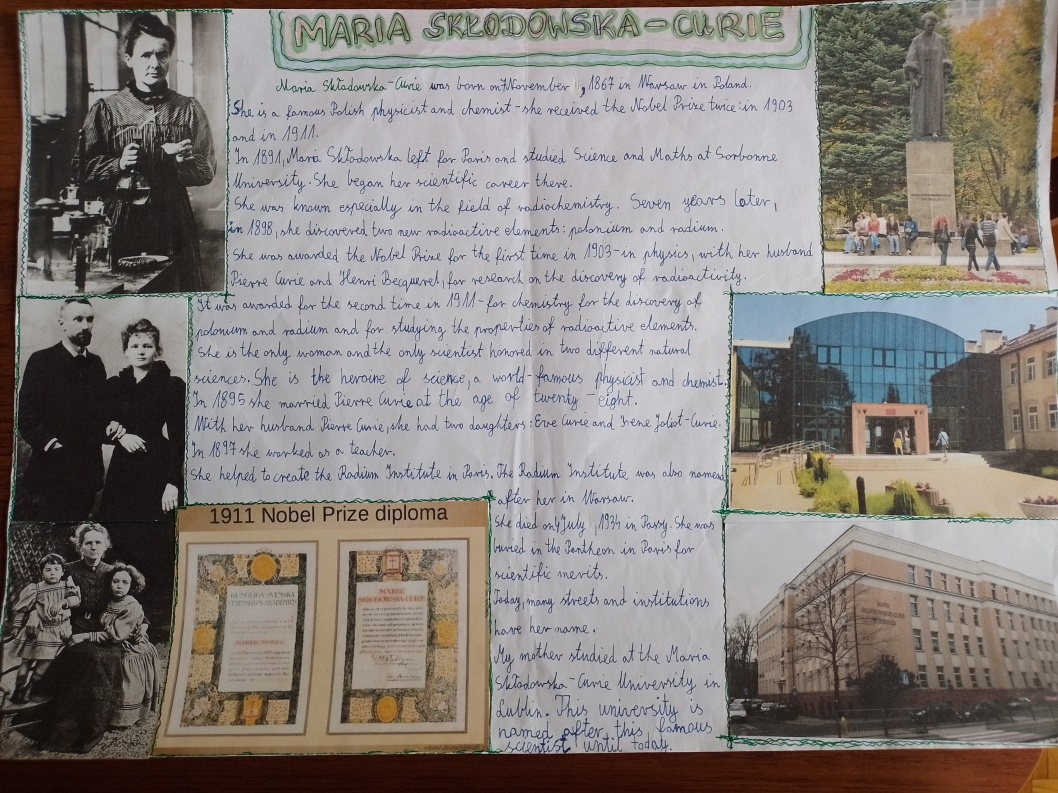 MARIA SKŁODOWSKA-CURIE
Maria Składowska-Curie was born on 7 November, 1867 in Warsaw in Poland.
She is a famous Polish physicist and chemist - she received the Nobel Prize twice: in 1903
and in 1911.
In 1891, Maria Skłodowska left for Paris and studied Science and Maths at Sorbonne
University. She began her scientific career there.
She was known especially in the field of radiochemistry. Seven years later,
in 1898, she discovered two new radioactive elements: polonium and radium.
She was awarded the Nobel Prize for the first time in 1903 - in physics, with her husband
Pierre Curie and Henri Becquerel, for research on the discovery of radioactivity.
It was awarded for the second time in 1911 - for chemistry for the discovery of
polonium and radium and for studying the properties of radioactive elements.
She is the only woman and the only scientist honored in two different natural
sciences. She is the heroine of science, a world-famous physicist and chemist.
In 1895 she married Pierre Curie at the age of twenty-eight.
With her husband Pierre Curie, she had two daughters: Eve Curie and Irene Joliot-Curie.
In 1897 she worked as a teacher.
She helped to create the Radium Institute in Paris. The Radium Institute was also named
after her in Warsaw.
She died on 4 July, 1934 in Passy. She was
buried in the Pantheon in Paris for
scientific merits.
Today, many streets and institutions
have her name.
My mother studied at the Maria
Skłodowska-Curie University in
Lublin. This university is
named after this famous
scientist until today.
1911 Nobel Prize diploma
KUNGLIGA SVENSKA
VETENSKAPSAKADEMIEN
ALFRED NOBEL
MARIE
SKŁODOWSKA CURIE